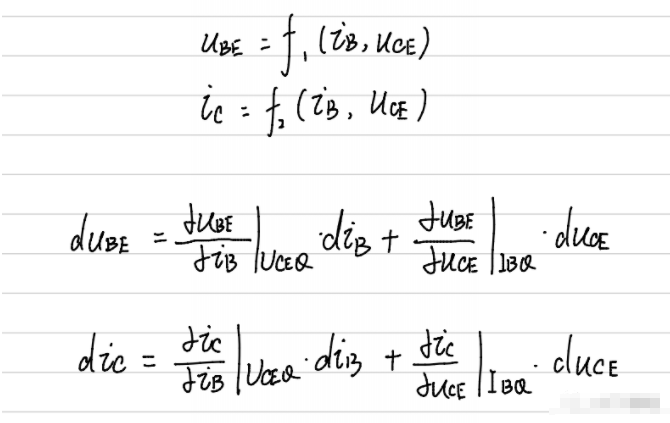 u_BE = f_1 (i_B, u_CE)
i_C = f_2 (i_B, u_CE)
du_BE = ∂u_BE/∂i_B |_{U_CEQ} · di_B + ∂u_BE/∂u_CE |_{I_BQ} · du_CE
di_C = ∂i_C/∂i_B |_{U_CEQ} · di_B + ∂i_C/∂u_CE |_{I_BQ} · du_CE